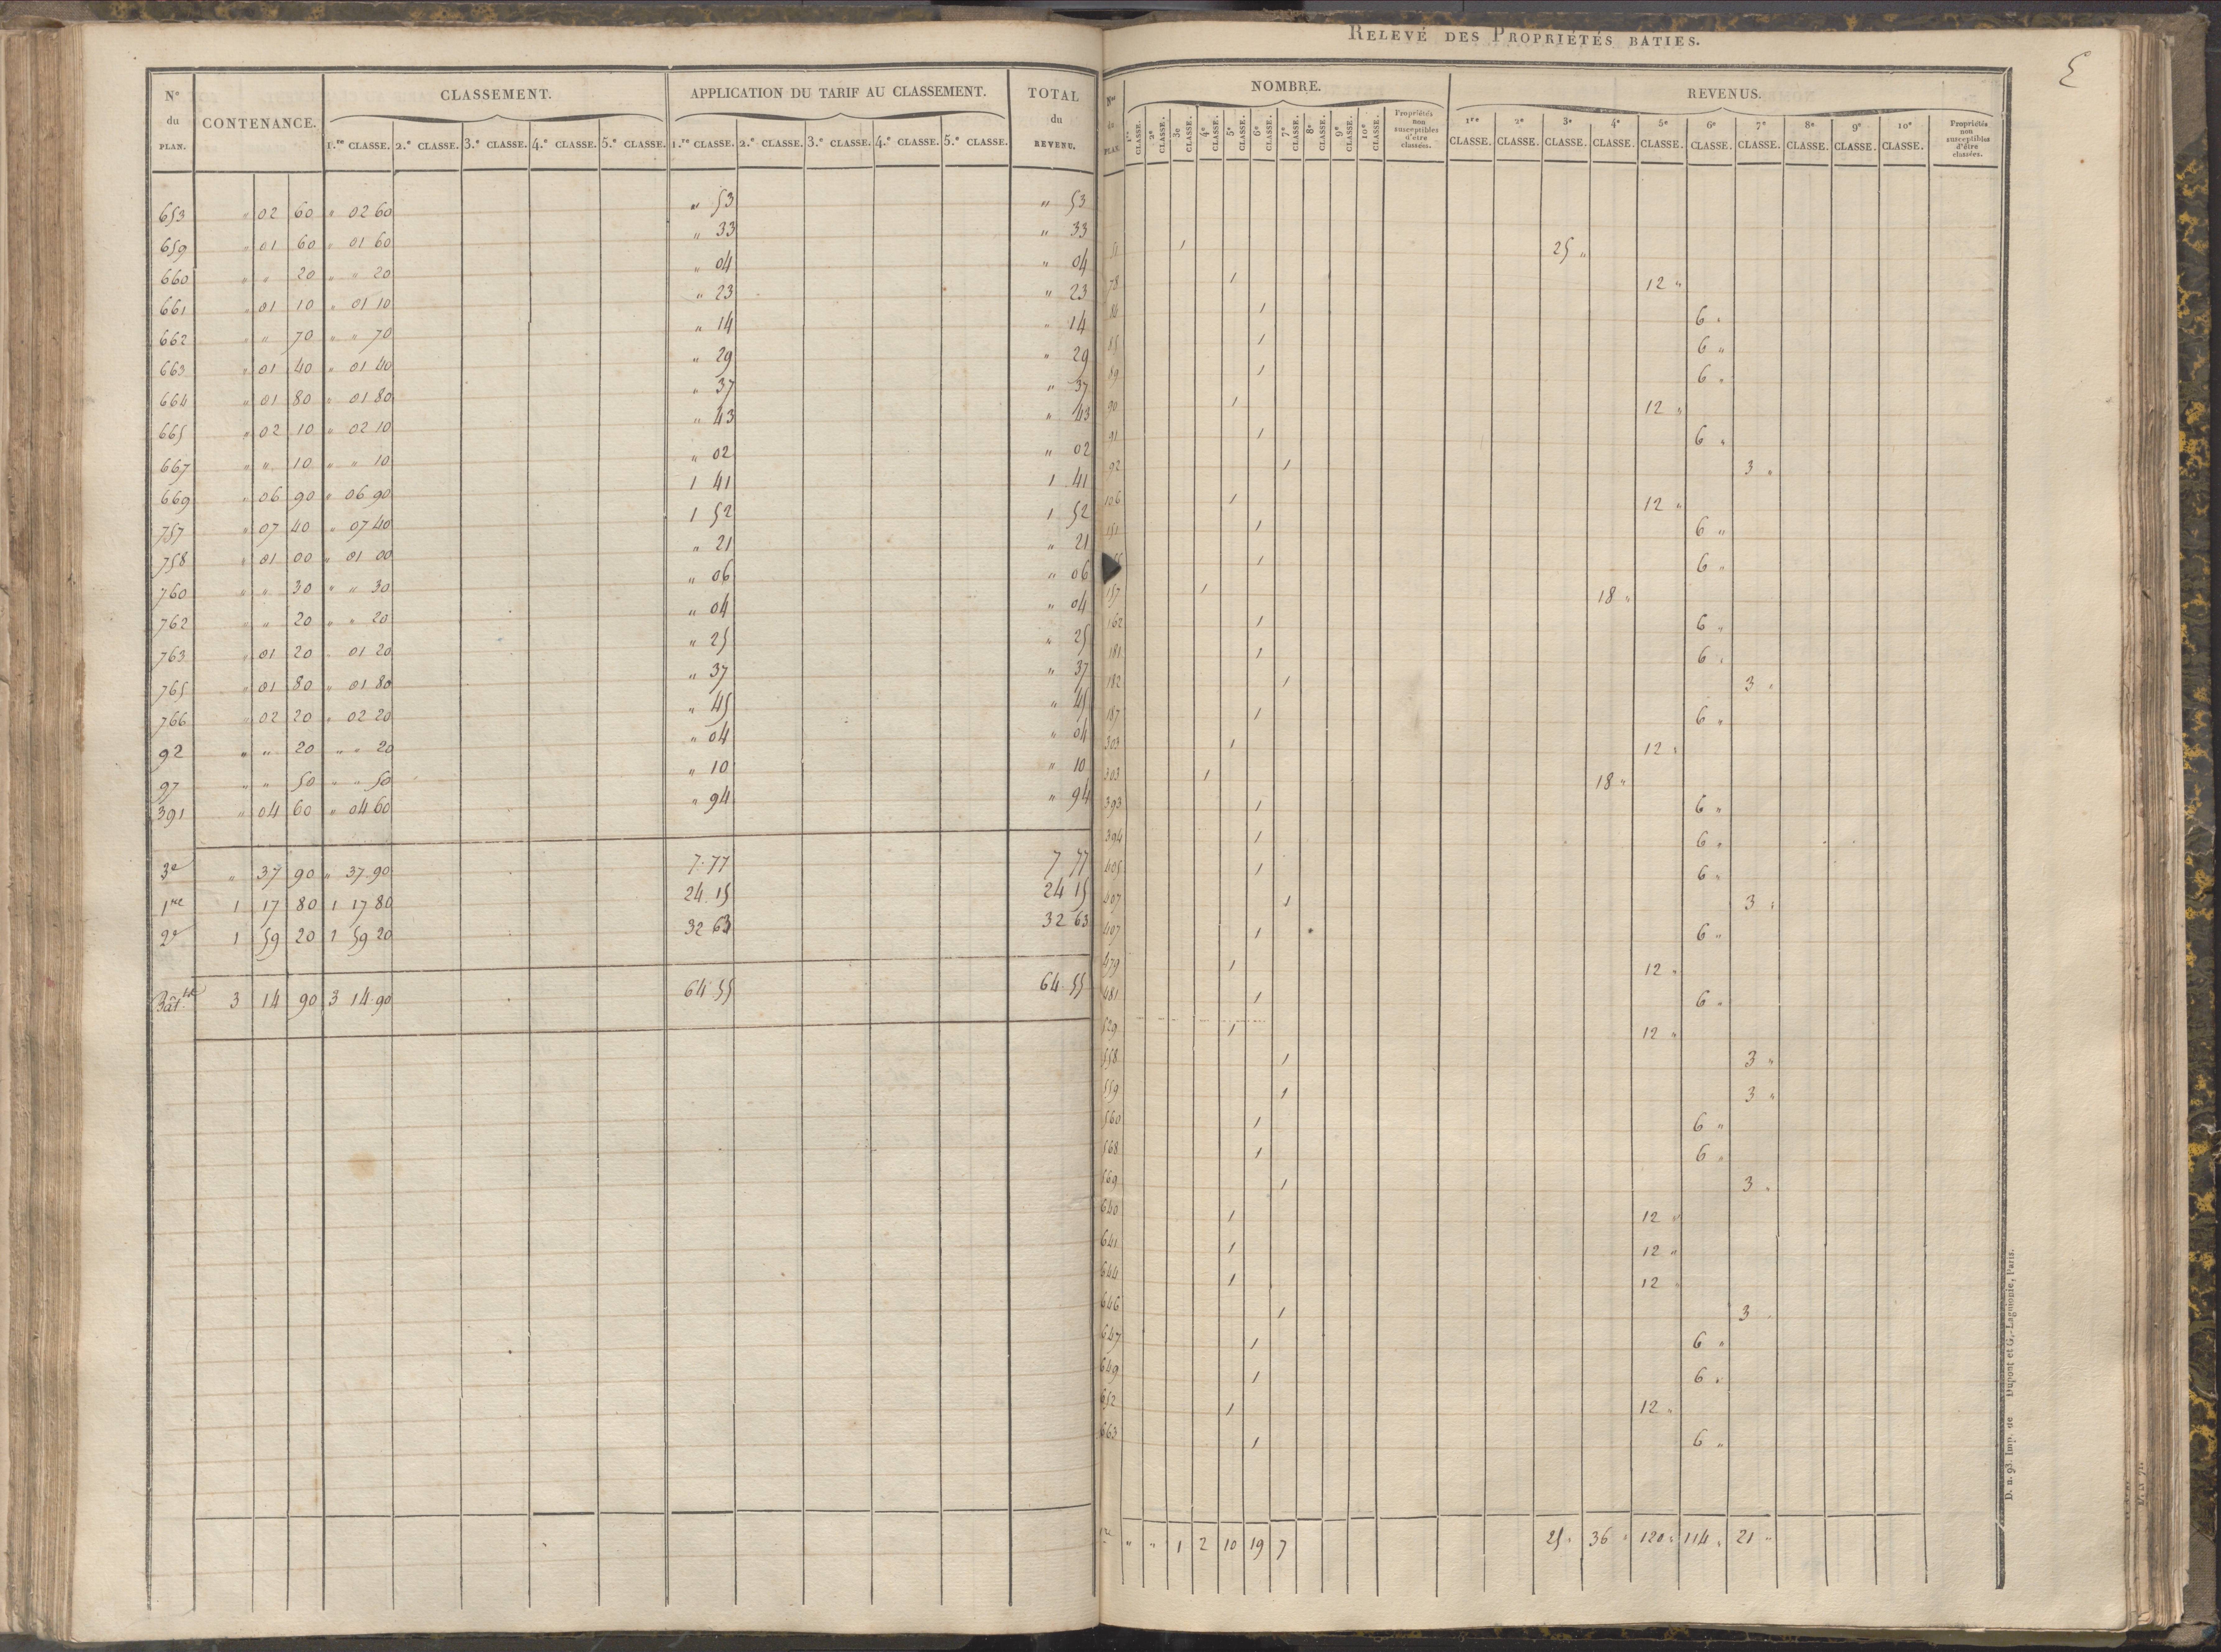 N° du PLAN. CONTENANCE. CLASSEMENT. APPLICATION DU TARIF AU CLASSEMENT. TOTAL du REVENU.
1.re CLASSE. 2.e CLASSE. 3.e CLASSE. 4.e CLASSE. 5.e CLASSE. 1.re CLASSE. 2.e CLASSE. 3.e CLASSE. 4.e CLASSE. 5.e CLASSE.
653 " 02 60 " 02 60 " 53 " 53
659 " 01 60 " 01 60 " 33 " 33
660 " " 20 " " 20 " 04 " 04
661 " 01 10 " 01 10 " 23 " 23
662 " " 70 " " 70 " 14 " 14
663 " 01 40 " 01 40 " 29 " 29
664 " 01 80 " 01 80 " 37 " 37
665 " 02 10 " 02 10 " 43 " 43
667 " " 10 " " 10 " 02 " 02
669 " 06 90 " 06 90 1 41 1 41
757 " 07 40 " 07 40 1 52 1 52
758 " 01 00 " 01 00 " 21 " 21
760 " " 30 " " 30 " 06 " 06
762 " " 20 " " 20 " 04 " 04
763 " 01 20 " 01 20 " 25 " 25
765 " 01 80 " 01 80 " 37 " 37
766 " 02 20 " 02 20 " 45 " 45
92 " " 20 " " 20 " 04 " 04
97 " " 50 " " 50 " 10 " 10
391 " 04 60 " 04 60 " 94 " 94
3e " 37 90 " 37 90 7.77 7 77
1re 1 17 80 1 17 80 24.15 24 15
2e 1 59 20 1 59 20 32 63 32 63
3 14 90 3 14.90 64.55 64.55
RELEVÉ DES PROPRIÉTÉS BATIES.
E
Nos du PLAN. NOMBRE. REVENUS.
1re CLASSE. 2e CLASSE. 3e CLASSE. 4e CLASSE. 5e CLASSE. 6e CLASSE. 7e CLASSE. 8e CLASSE. 9e CLASSE. 10e CLASSE. Propriétés non susceptibles d'être classées. 1re CLASSE. 2e CLASSE. 3e CLASSE. 4e CLASSE. 5e CLASSE. 6e CLASSE. 7e CLASSE. 8e CLASSE. 9e CLASSE. 10e CLASSE. Propriétés non susceptibles d'être classées.
1 25 "
78 1 12 "
84 1 6 "
85 1 6 "
89 1 6 "
90 1 12 "
91 1 6 "
92 1 3 "
106 1 12 "
151 1 6 "
1 6 "
157 1 18 "
162 1 6 "
181 1 6 "
182 1 3 "
187 1 6 "
303 1 12 "
303 1 18 "
393 1 6 "
394 1 6 "
405 1 6 "
407 1 3 "
407 1 6 "
479 1 12 "
481 1 6 "
529 1 12 "
558 1 3 "
559 1 3 "
560 1 6 "
568 1 6 "
569 1 3 "
640 1 12 "
641 1 12 "
644 1 12 "
646 1 3 "
647 1 6 "
649 1 6 "
652 1 12 "
663 1 6 "
" " 1 2 10 19 7 25 " 36 " 120 " 114 " 21 "
D. n. 93. Imp. de Dupont et G.-Laguionie, Paris.